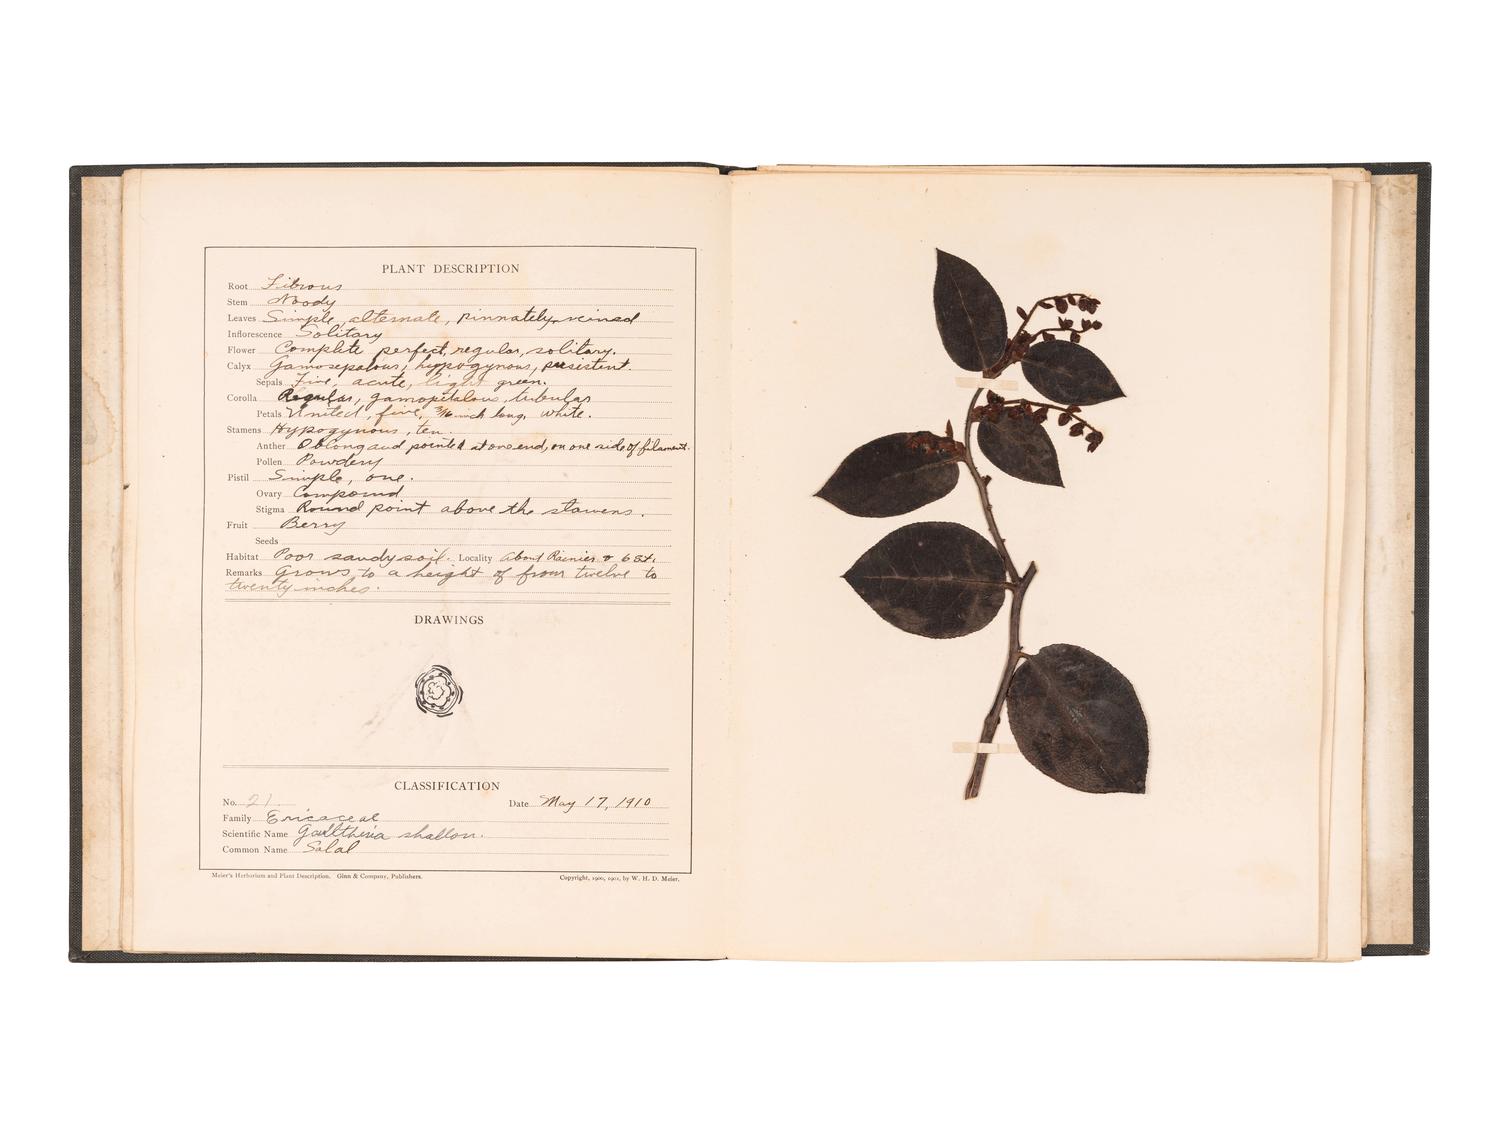 PLANT DESCRIPTION
Root Fibrous
Stem Woody
Leaves Simple, alternate, pinnately veined
Inflorescence Solitary
Flower Complete perfect, regular, solitary.
Calyx Gamosepalous, hypogynous, persistent.
Sepals Five, acute, light green.
Corolla Regular, gamopetalous, tubular
Petals United, five, 3/16 inch long, white.
Stamens Hypogynous, ten.
Anther Oblong and pointed at one end, on one side of filament.
Pollen Powdery
Pistil Simple, one.
Ovary Compound
Stigma Round point above the stamens.
Fruit Berry
Seeds
Habitat Poor sandy soil. Locality About Rainier & 68st.
Remarks Grows to a height of from twelve to
twenty inches.
DRAWINGS
CLASSIFICATION
No. 21. Date May 17, 1910
Family Ericaceae
Scientific Name Gaultheria shallon.
Common Name Salal
Meier's Herbarium and Plant Description. Ginn & Company, Publishers. Copyright, 1900, 1901, by W. H. D. Meier.